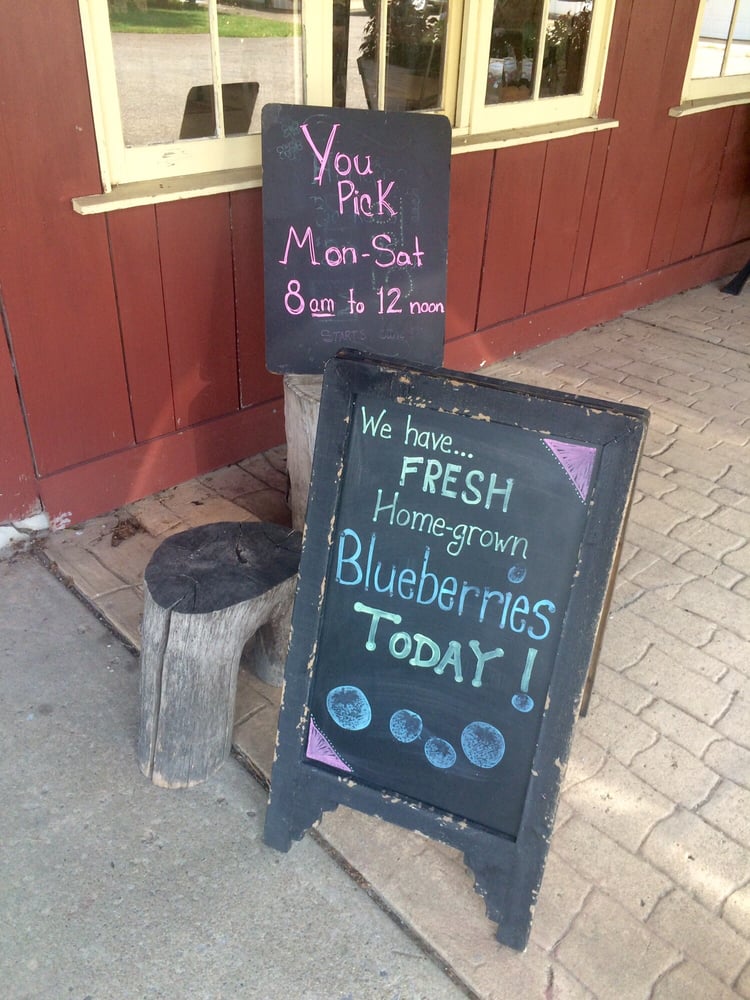 You
Pick
Mon-Sat
8 am to 12 noon
STARTS
We have...
FRESH
Home-grown
Blueberries
TODAY!